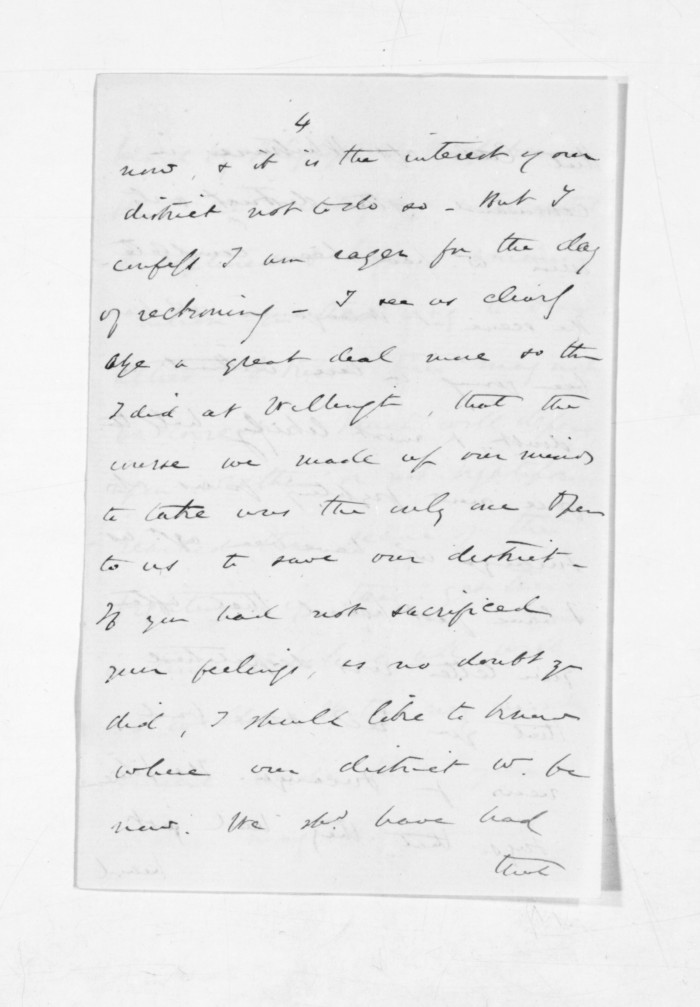 4
now, & it is the interest of our
district not to do so - But I
confess I am eager for the day
of reckoning - I see as clearly
aye a great deal more so than
I did at Wellington, that the
course we made up our minds
to take was the only one open
to us to save our district -
If you had not sacrificed
your feelings, as no doubt you
did, I should like to know
where our district wd. be
now. We shd. have had
that